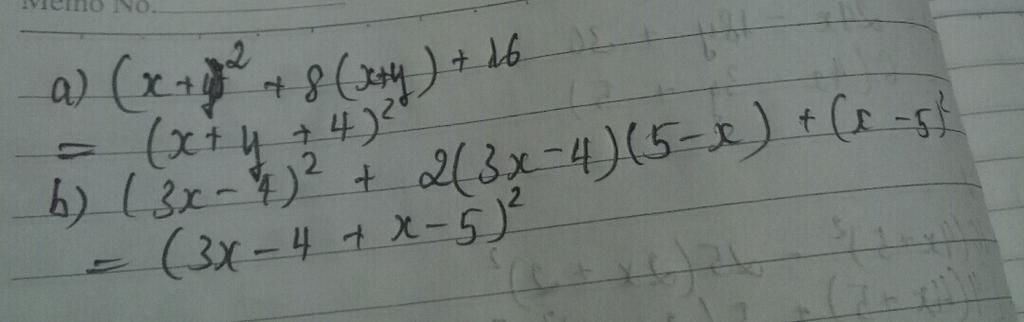 Memo No.
a) (x+y)² + 8(x+y) + 16
= (x+y+4)²
b) (3x-4)² + 2(3x-4)(5-x) + (x-5)²
= (3x-4 + x-5)²